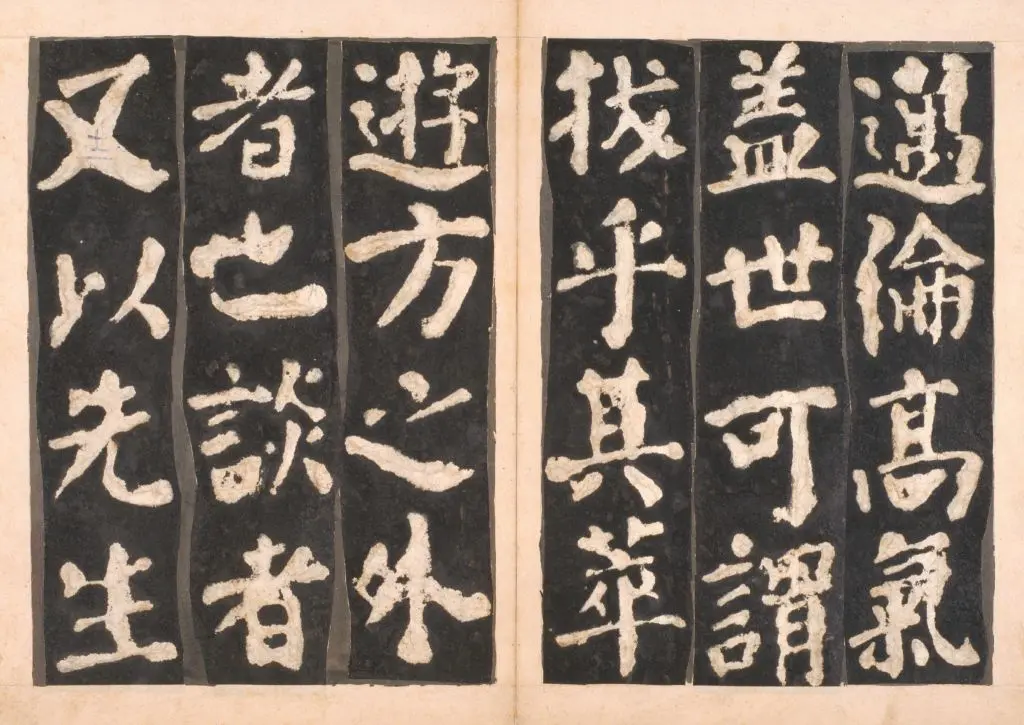 邁倫高氣
盖世可謂
拔乎其萃
遊方之外
者已談者
又以先生